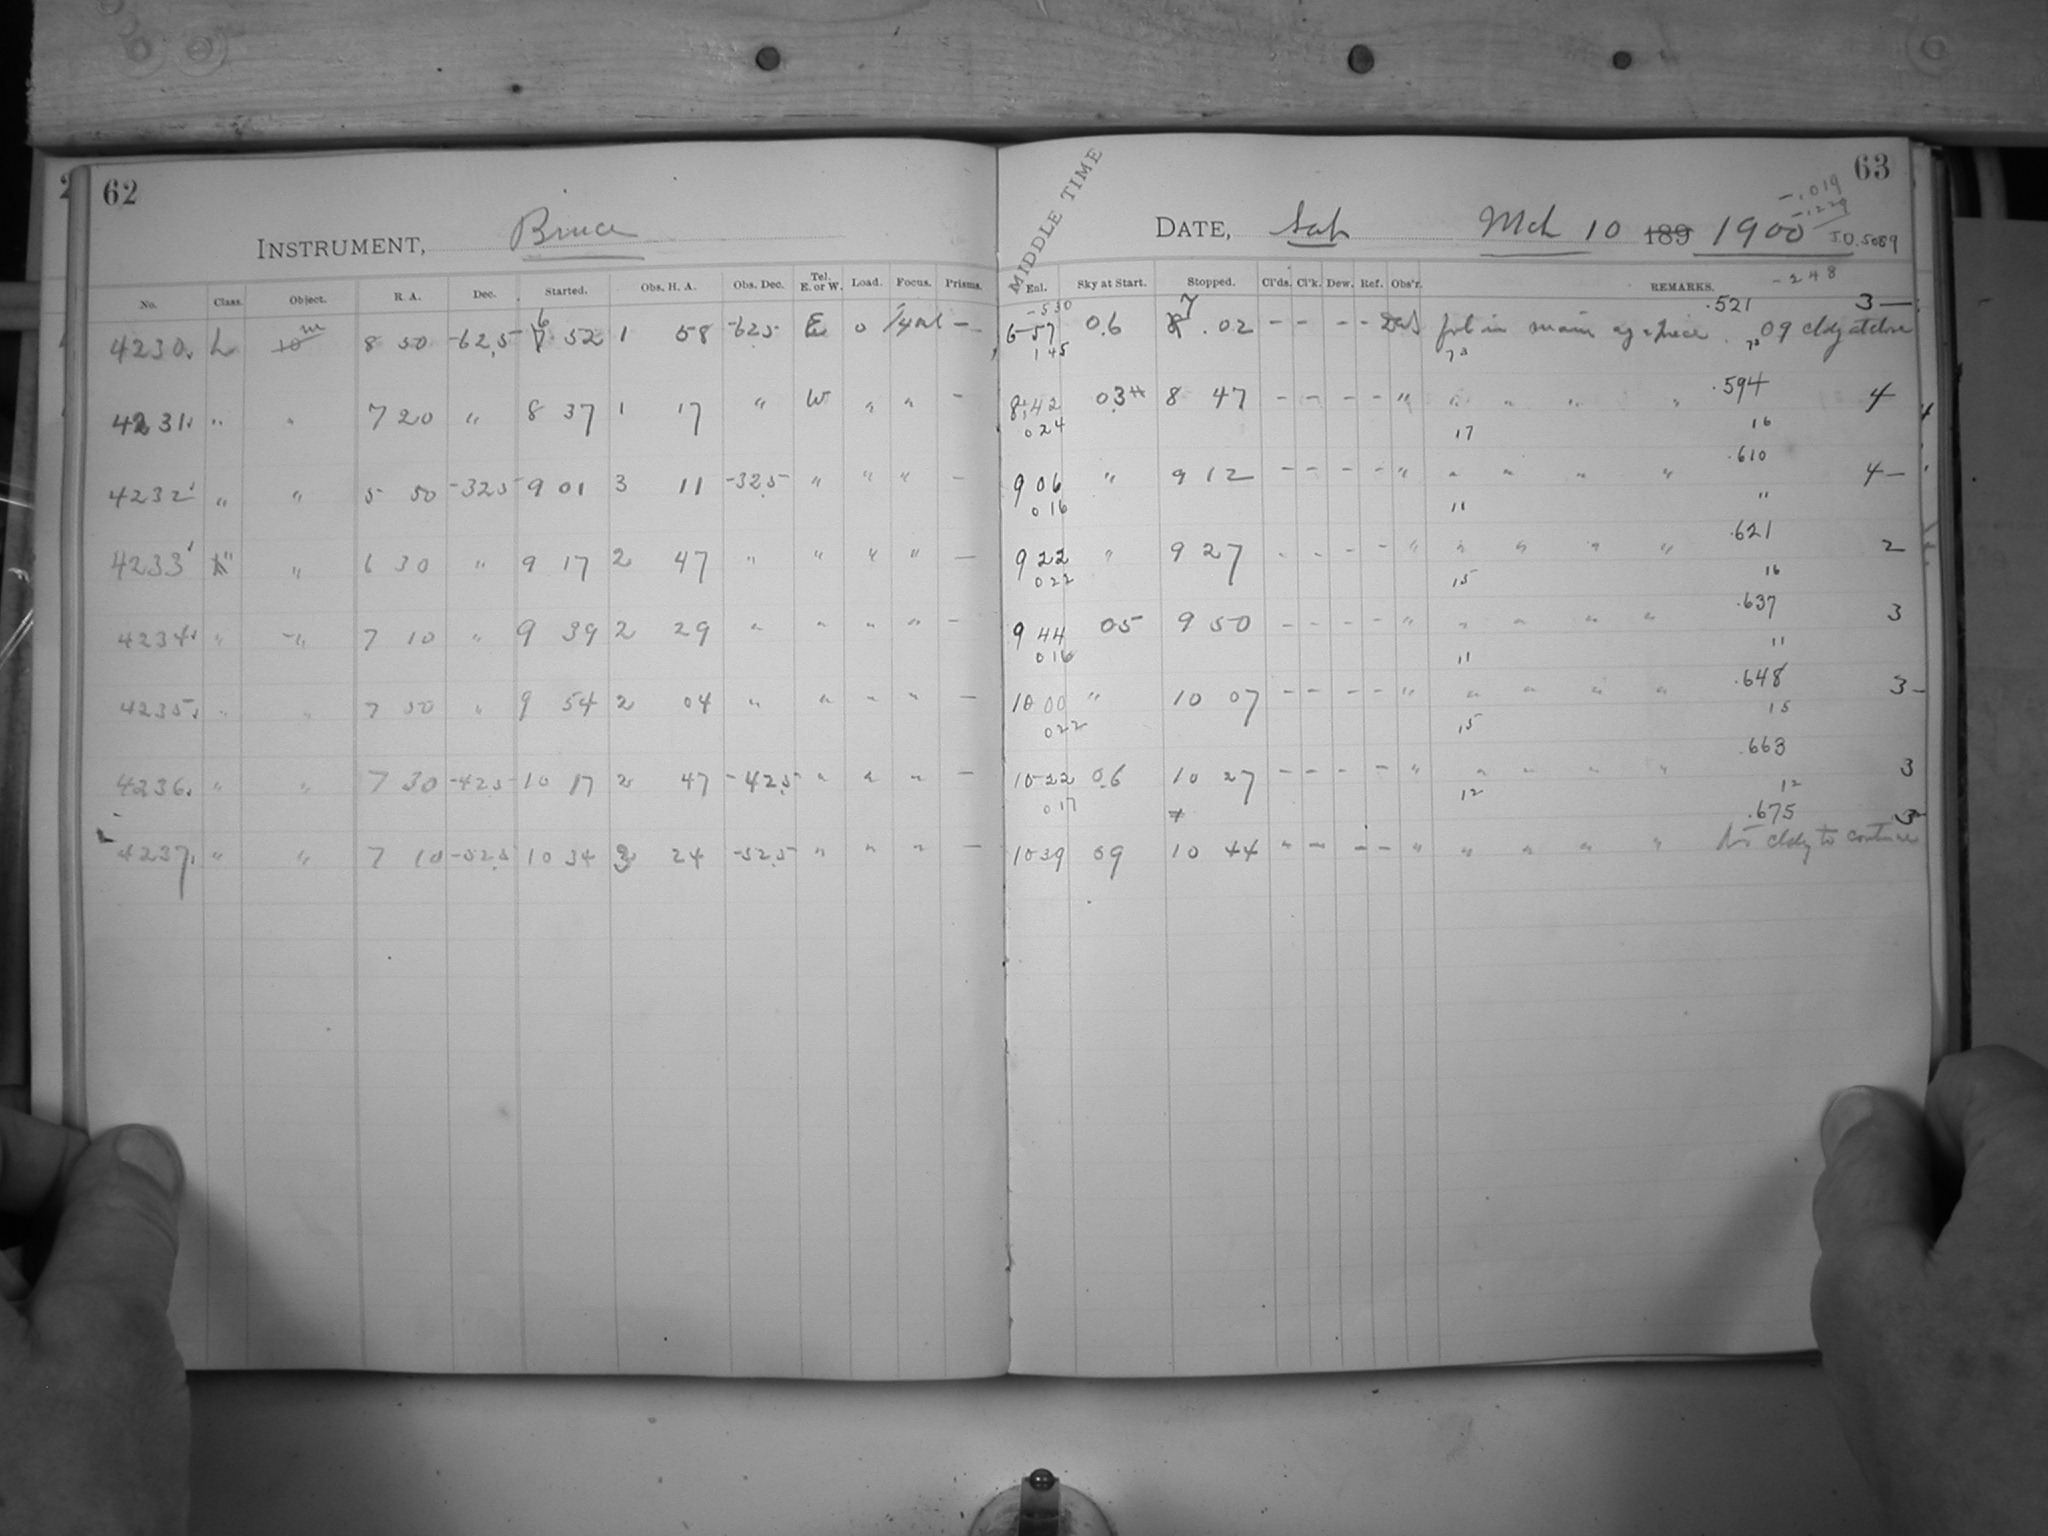 62
INSTRUMENT, Bruce
No. Class. Object. R. A. Dec. Started. Obs. H. A. Obs. Dec. Tel. E. or W. Load. Focus. Prisms.
4230. L 10 m 8 50 -62.5 6 52 1 58 -62.5 E 0 —
4231. " " 7 20 " 8 37 1 17 " W " " —
4232 " " 5 50 -32.5 9 01 3 11 -32.5 " " " —
4233 " " 6 30 " 9 17 2 47 " " " " —
4234. " " 7 10 " 9 39 2 29 " " " " —
4235. " " 7 50 " 9 54 2 04 " " " " —
4236. " " 7 30 -42.5 10 17 2 47 -42.5 " " " —
4237. " " 7 10 -52.5 10 34 3 24 -52.5 " " " —
63
MIDDLE TIME
DATE, Sat Mch 10 189 1900
-.019
-.229
J.D. 5089
-248
Enl. Sky at Start. Stopped. Cl'ds. Cl'k. Dew. Ref. Obs'r. REMARKS.
-530 .521 3—
6 57 0.6 7 .02 — — — — in main 09 cldy at close
1 45 73 73
.594
8 42 03 8 47 — — — — " " " " " 4
0 24 17 16
.610
9 06 " 9 12 — — — — " " " " " 4—
0 16 11 "
.621
9 22 " 9 27 — — — — " " " " " 2
0 22 15 16
.637
9 44 05 9 50 — — — — " " " " " 3
0 16 11 11
.648
10 00 " 10 07 — — — — " " " " " 3-
0 22 15 15
.663
10 22 0.6 10 27 — — — — " " " " " 3
0 17 12 12
.675 3
10 39 09 10 44 " — — — " " " " " cldy to continue